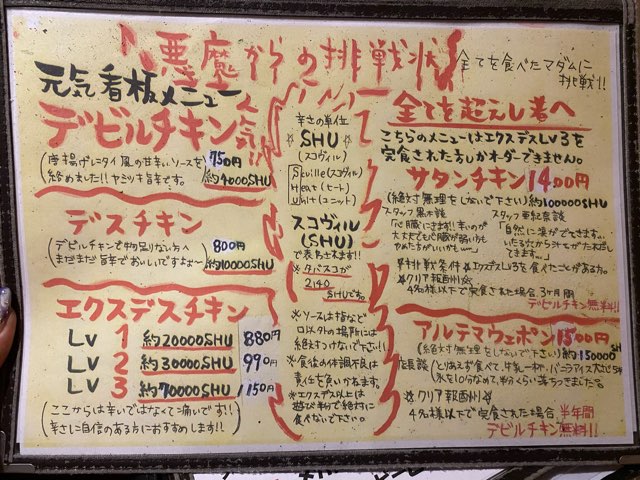 悪魔からの挑戦状
全てを食べたマダムに
挑戦!!
元気看板メニュー
デビルチキン
人気!!
(唐揚げにタイ風の甘辛いソースを
絡めました!!ヤミツキ旨辛です。
750円
約4000SHU
デスチキン
(デビルチキンで物足りない方へ
まだまだ旨辛でおいしいですよ~)
800円
約10000SHU
エクスデスチキン
Lv 1 約20000SHU 880円
Lv 2 約30000SHU 990円
Lv 3 約70000SHU 1150円
(ここからは辛いではなくて痛いです!!
辛さに自信のある方におすすめします!!)
辛さの単位
SHU
(スコヴィル)
Scoville(スコヴィル)
Heat(ヒート)
Unit(ユニット)
スコヴィル
(SHU)
で表わされます!!
タバスコが
2140
SHUです。
※ソースは指など
口以外の場所には
絶対つけないで下さい!!
※食後の体調不良は
責任を負いかねます。
※エクスデス以上は
遊び半分で絶対に
食べないで下さい。
全てを超えし者へ
こちらのメニューはエクスデスLv3を
完食された方しかオーダーできません。
サタンチキン 1400円
(絶対無理をしないで下さい)約100000SHU
スタッフ黒木談
「心臓にきます!!辛いので
大丈夫でも心臓が弱い方も
やめた方がいいかも…」
スタッフ亜紀奈談
「自然に涙がでてきます。
挑戦条件 エクスデスLv3を食べたことがある。
クリア報酬
4名様以下で完食された場合3ヶ月間
デビルチキン無料!!
アルテマウェポン 1500円
(絶対無理をしないで下さい)約150000SHU
店長談
クリア報酬
4名様以下で完食された場合 半年間
デビルチキン無料!!